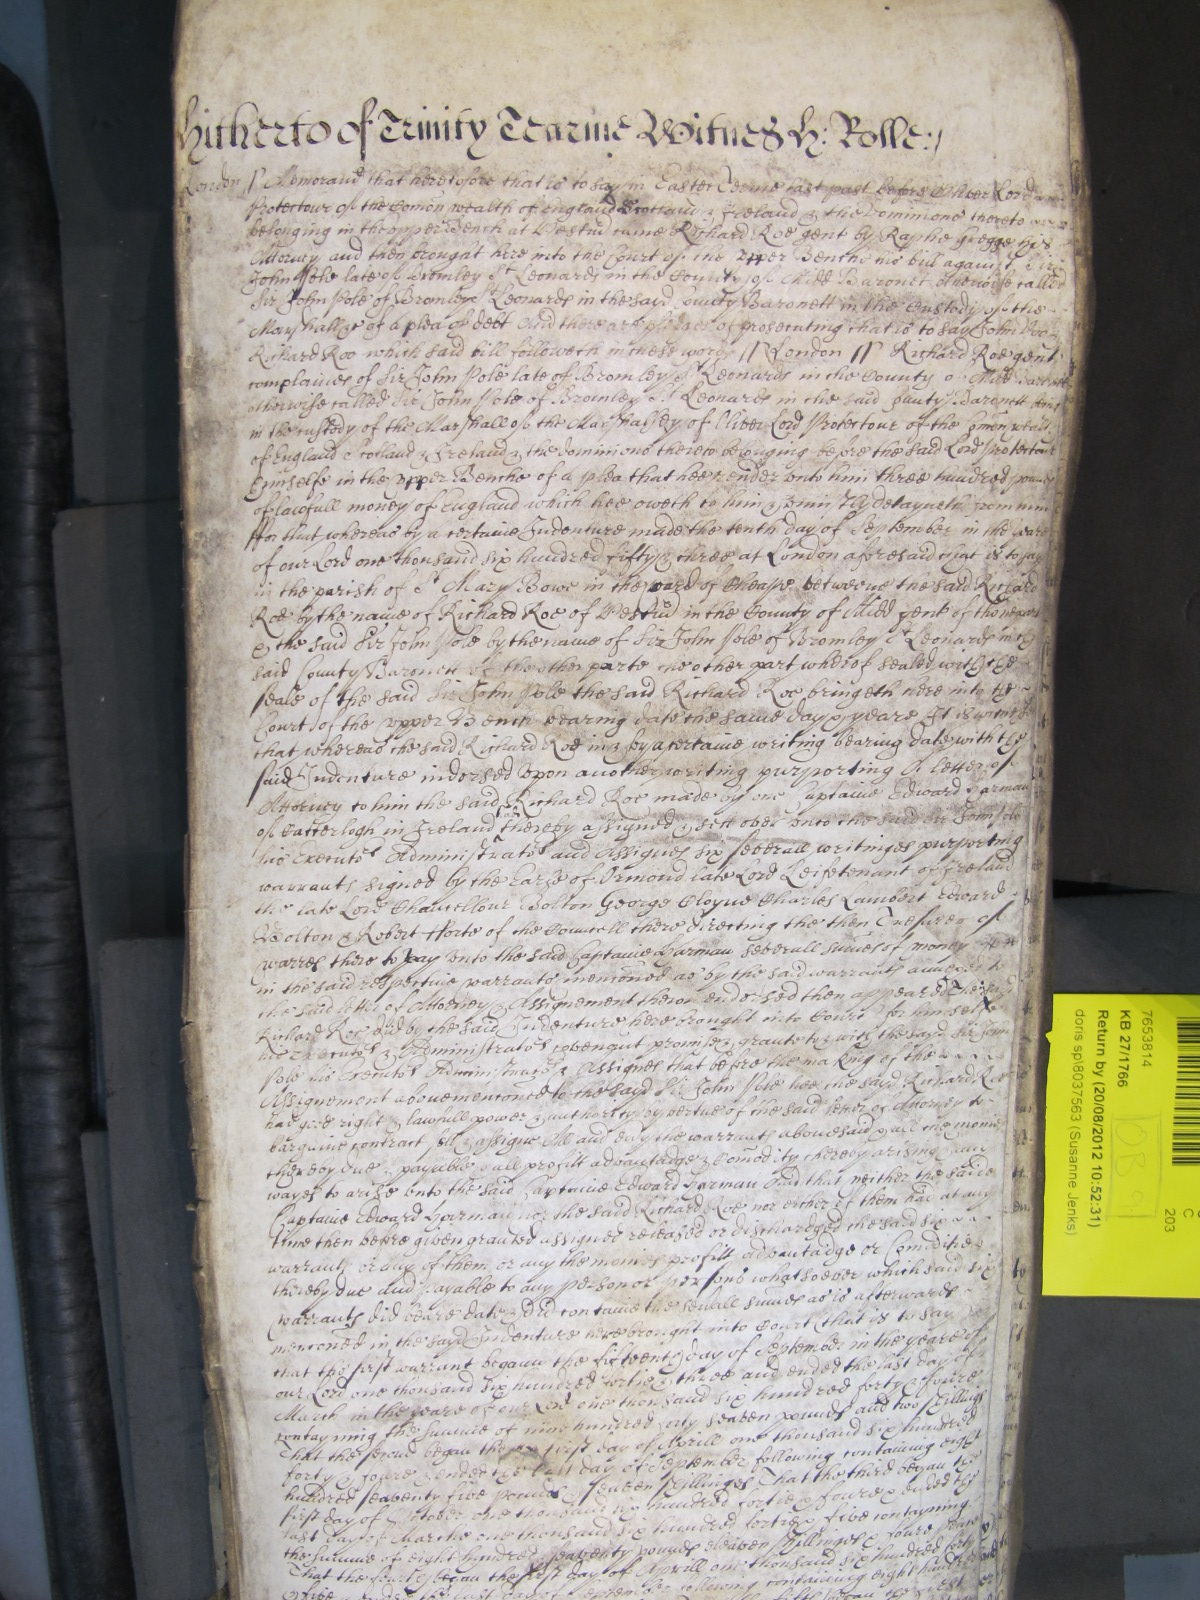 Hitherto of Trinity Tearme Witnes H: Rolle:/
London // Memorand that heretofore that is to say in Easter Terme last past before Oliver Lord
Protectour of the Comon wealth of England Scotland & Ireland & the Dominions thereto
belonging in the upper bench at Westm came Richard Roe gent by Raphe Gregge his
Attorney and then brought here into the Court of the upper Benche his bill against Sir
John Pole late of Bromley St Leonards in the County of Midd Baronet otherwise called
Sir John Pole of Bromley St Leonards in the said County Baronett in the Custody of the
Marshall &c of a plea of debt And there are pledges of prosecuting that is to say John Doo
Richard Roo which said bill followeth in these words // London // Richard Roe gent
complaines of Sir John Pole late of Bromley St Leonards in the County of Midd Baronet
otherwise called Sir John Pole of Bromley St Leonards in the said County Baronett being
in the custody of the Marshall of the Marshalsey of Oliver Lord Protectour of the Comon wealth
of England Scotland & Ireland & the dominions thereto belonging before the said Lord Protectour
himselfe in the upper Benche of a plea that hee render unto him three hundred pounds
of lawfull money of England which hee oweth to him & uniustly detayneth from him
ffor that whereas by a certaine Indenture made the tenth day of September in the yeare
of our Lord one thousand six hundred fifty & three at London aforesaid that is to say
in the parish of St Mary Bowe in the ward of Cheape betweene the said Richard
Roe by the name of Richard Roe of Westm in the County of Midd gent of the one part
& the said Sir John Pole by the name of Sir John Pole of Bromley St Leonards in the
said County Baronett of the other parte one other part whereof sealed with the
seale of the said Sir John Pole the said Richard Roe bringeth here into the
Court of the upper Bench bearing date the same day & yeare It is witnes
that whereas the said Richard Roe in & by a certaine writing bearing date with the
said Indenture indorsed upon another writing purporting A letter of
Attorney to him the said Richard Roe made by one Captaine Edward Harman
of Catterlogh in Ireland thereby assigned & sett over unto the said Sir John Pole
his Executors Administrators and Assignes six severall writinges purporting
warrants signed by the Earle of Ormond late Lord Leiftenant of Ireland
the late Lord Chancellour Bolton George Cloyne Charles Lambert Edward
Bolton & Robert fforte of the Councell there directing the then Tresurer of
warres there to pay unto the said Captaine Harman severall sumes of money
in the said respective warrants mencioned as by the said warrants annexed to
the said letter of Attorney & Assignement theron endorsed then appeared The said
Richard Roe did by the said Indenture here brought into Court for himselfe
his Executors & Administrators covenant promise & graunt to & with the sayd Sir John
Pole his Executors Administrators & Assignes that before the making of the
Assignement abovementioned to the sayd Sir John Pole hee the sayd Richard Roe
had good right & lawfull power & authority by vertue of the said letter of Attorney to
bargaine contract sell & assigne All and every the warrants abovesaid & all the monies
thereby due & payable & all profitt advantadge & Comodity thereby arising
wayes to arise unto the said Captaine Edward Harman And that neither the saide
Captaine Edward Harman nor the said Richard Roe nor either of them had at any
time then before given granted assigned released or dischareged the said six
warrants or any of them or any the monies profitt advantadge or Comodities
thereby due and payable to any person or persons whatsoever which said six
warrants did beare date & did containe the severall sumes as is afterwards
mencioned in the sayd Indenture here brought into Court that is to say
that the first warrant began the fifteenth day of September in the yeare of
our Lord one thousand six hundred fortie & three and ended the last day of
March in the yeare of our Lord one thousand six hundred forty & foure
contayning the summe of nine hundred forty seaven pounds and two shillings
That the second began the first day of Aprill one thousand six hundred
forty & foure & ended the last day of September following containing eight
hundred seaventy five pounds & seaven shillinges That the third began the
first day of October one thousand six hundred fortie & foure & ended the
last day of Marche one thousand six hundred forty & five contayning
the summe of eight hundred seaventy pounds eleaven shillinges & foure pence
That the fourth began the first day of Aprill one thousand six hundred forty
& five & ended the last day of September following containing eight hundred
7653814
KB 27/1766
Return by (20/08/2012 10:52:31)
doris sp\8037563 (Susanne Jenks)
C
203